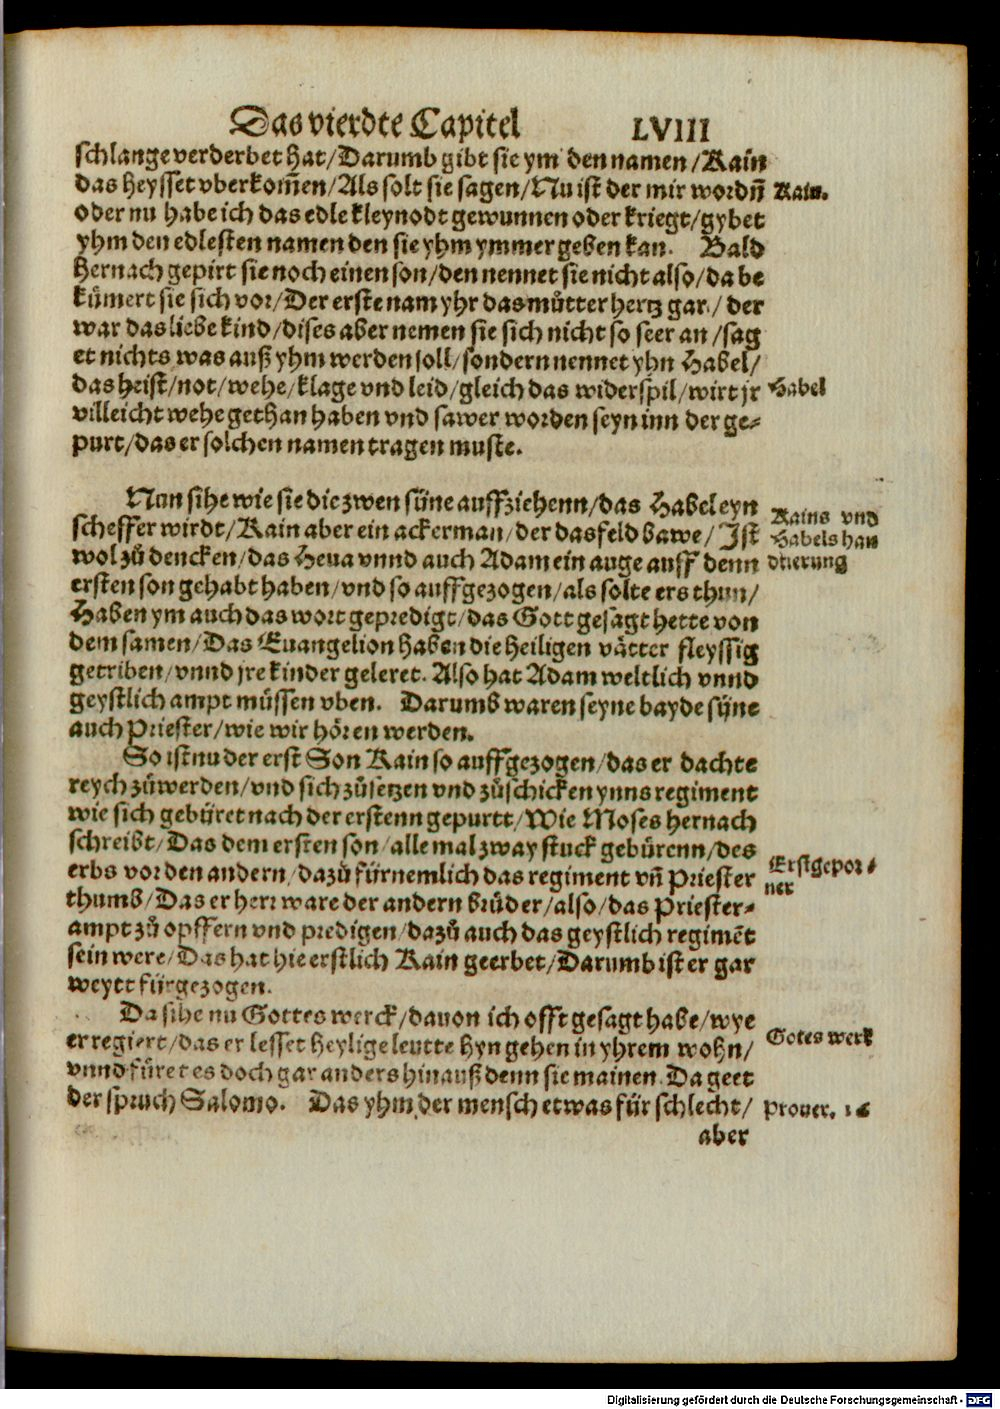 Das vierdte Capitel LVIII
schlange verderbet hat/Darumb gibt sie ym den namen/Kain
das heysset vberkom̃en/Als solt sie sagen/Nu ist der mir wordn̄ Kain.
oder nu habe ich das edle kleynodt gewunnen oder kriegt/gybet
yhm den edlesten namen den sie yhm ymmer geben kan. Bald
hernach gepirt sie noch einen son/den nennet sie nicht also/da be
kümert sie sich vor/Der erste nam yhr das můtter hertz gar/der
war das liebe kind/dises aber nemen sie sich nicht so seer an/sag
et nichts was auß yhm werden soll/sondern nennet yhn Habel/
das heist/not/wehe/klage vnd leid/gleich das widerspil/wirt jr Habel
villeicht wehe gethan haben vnd sawer worden seyn inn der ge-
purt/das er solchen namen tragen muste.
Nun sihe wie sie die zwen süne auffziehenn/das Habel eyn
scheffer wirdt/Kain aber ein ackerman/der das feld bawe/Ist
wol zů dencken/das Heua vnnd auch Adam ein auge auff denn
ersten son gehabt haben/vnd so auffgezogen/als solte ers thun/
Haben ym auch das wort gepredigt/das Gott gesagt hette von
dem samen/Das Euangelion haben die heiligen vätter fleyssig
getriben/vnnd jre kinder geleret. Also hat Adam weltlich vnnd
geystlich ampt müssen vben. Darumb waren seyne bayde süne
auch Priester/wie wir hören werden.
Kains vnd
Habels han
dtierung
So ist nu der erst Son Kain so auffgezogen/das er dachte
reych zůwerden/vnd sich zůsetzen vnd zůschicken ynns regiment
wie sich gebüret nach der erstenn gepurtt/Wie Moses hernach
schreibt/Das dem ersten son/alle mal zway stuck gebürenn/des
erbs vor den andern/dazů fürnemlich das regiment vn̄ Priester
thumb/Das er herr ware der andern brüder/also/das Priester-
ampt zů opffern vnd predigen/dazů auch das geystlich regimēt
sein were/Das hat hie erstlich Kain geerbet/Darumb ist er gar
weytt fürgezogen.
Erstgepor-
ner
Da sihe nu Gottes werck/dauon ich offt gesagt habe/wye
er regiert/das er lesset heylige leutte hyn gehen in yhrem wohn/
vnnd füret es doch gar anders hinauß denn sie mainen. Da geet
der spruch Salomo. Das yhm der mensch etwas für schlecht/
aber
Gotes werk
Prouer. 16
Digitalisierung gefördert durch die Deutsche Forschungsgemeinschaft - DFG